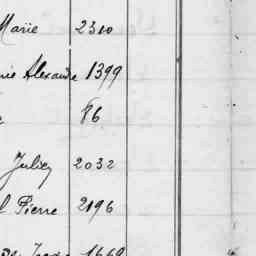 Marie 2310
Alexandre 1399
86
Julien 2032
Pierre 2196
1669